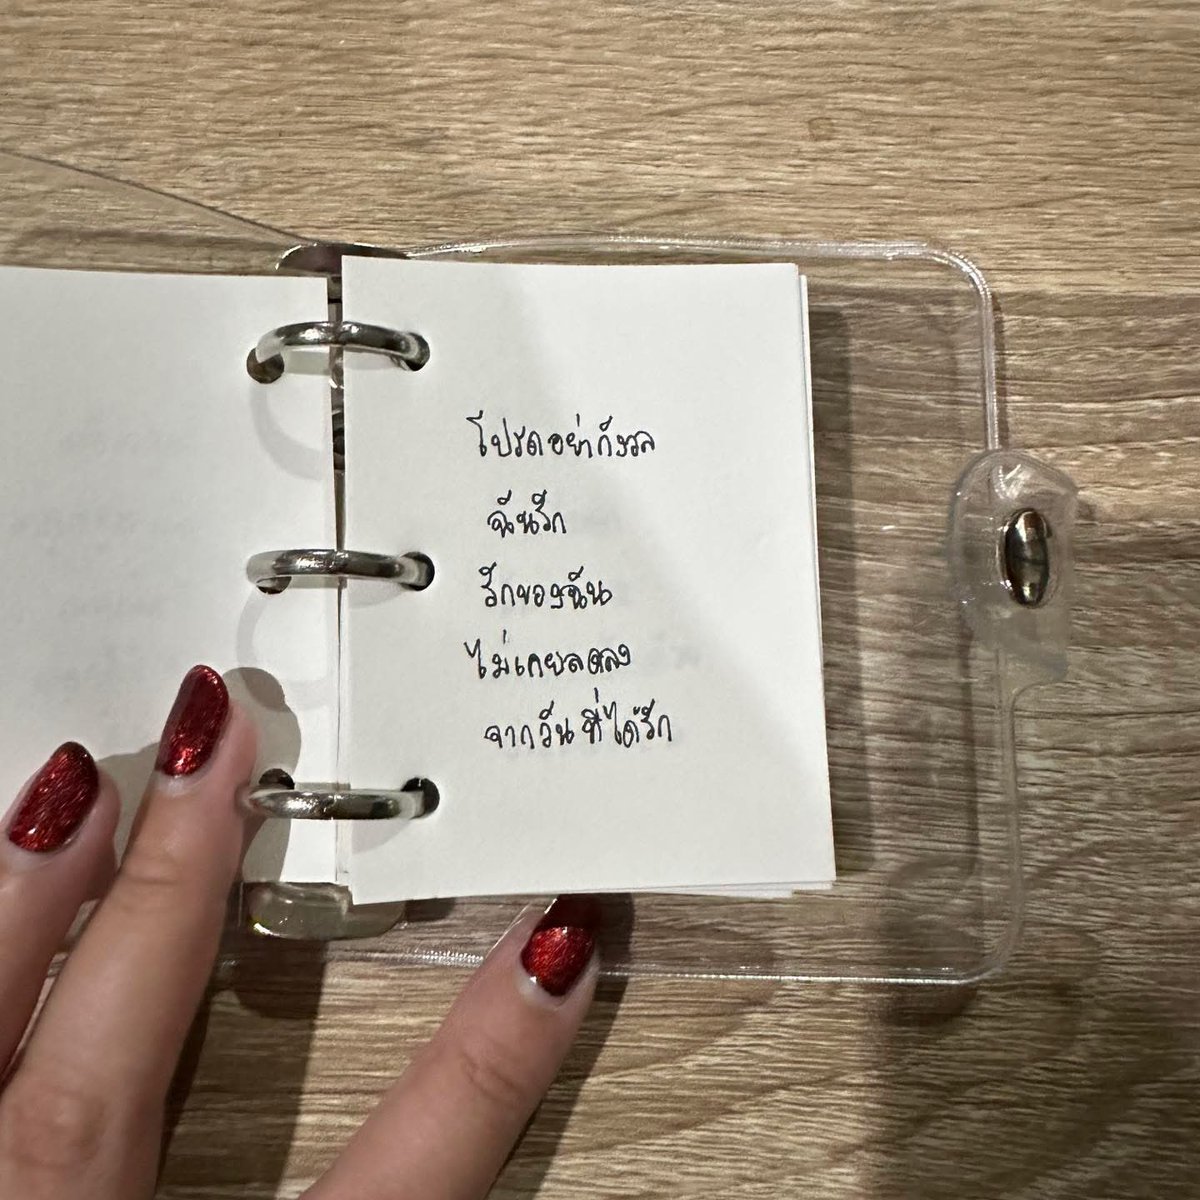 โปรดอย่ากังวล
ฉันรัก
รักของฉัน
ไม่เคยลดลง
จากวันที่ได้รัก